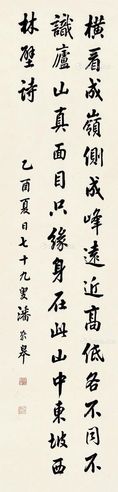 橫看成嶺側成峰遠近高低各不同不
識廬山真面目只緣身在此山中東坡西
林壁詩
乙酉夏日七十九叟潘承皋